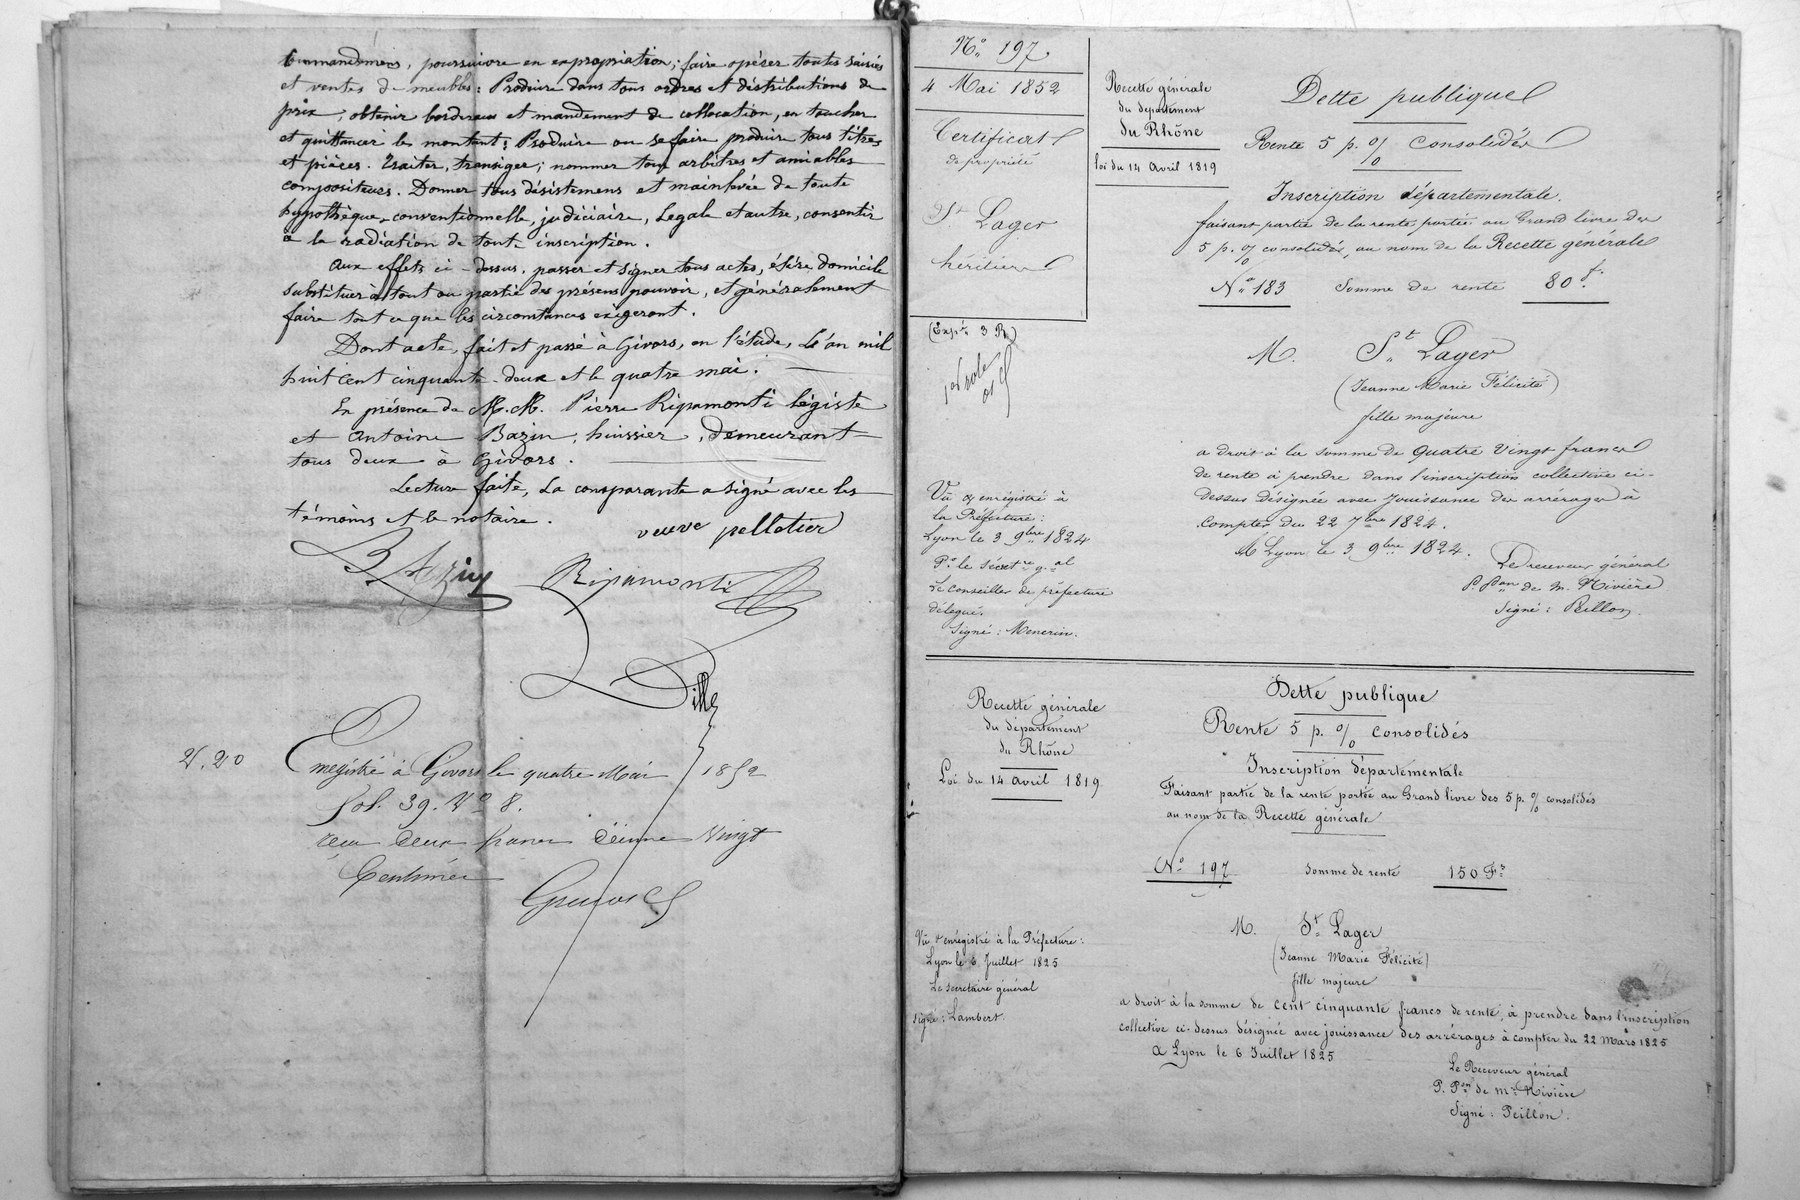 Commandemens, poursuivre en expropriation; faire opérer toutes saisies
et ventes de meubles: Produire dans tous ordres et distributions de
prix, obtenir bordereaux et mandement de collocation, en toucher
et quittancer le montant; Produire ou se faire produire tous titres
et pièces. Traiter, transiger; nommer tous arbitres et amiables
compositeurs. Donner tous désistemens et mainlevée de toute
hypothèque conventionnelle, judiciaire, légale et autre, consentir
à la radiation de toute inscription.
Aux effets ci-dessus, passer et signer tous actes, élire domicile
substituer à tout ou partie des présens pouvoir, et généralement
faire tout ce que les circonstances exigeront.
Dont acte, fait et passé à Givors, en l'étude, L'an mil
huit cent cinquante-deux et le quatre mai.
En présence de M.M. Pierre Ripamonti légiste
et Antoine Bazin, huissier, demeurant
tous deux à Givors.
Lecture faite, la comparante a signé avec les
témoins et le notaire.
veuve pelletier
Bazin
Ripamonti
2.20
Enregistré à Givors le quatre Mai 1852
fol. 39. Vº 8.
reçu deux francs décime vingt
Centimes
Nº 197.
4 Mai 1852
Certificat
de propriété
St Lager
héritiers
(Expte 3 R)
1er rôle
Recette générale
du département
du Rhône
loi du 14 Avril 1819
Dette publique
Rente 5 p. % consolidés
Inscription départementale.
faisant partie de la rente portée au Grand livre des
5 p. % consolidés, au nom de la Recette générale
Nº 183 Somme de rente 80 f.
M. St Lager
(Jeanne Marie Félicité)
fille majeure
a droit à la somme de quatre vingt francs
de rente à prendre dans l'inscription collective ci-
dessus désignée avec jouissance des arrérages à
compter du 22 7bre 1824.
A Lyon le 3 9bre 1824.
Le receveur général
P. Pon de M. Rivière
Signé: Peillon
Vu & enregistré à
la Préfecture:
Lyon le 3 9bre 1824
Pr le Sécretre g.al
Le Conseiller de préfecture
délégué.
Signé: Menerin.
Recette générale
du département
du Rhône
Loi du 14 avril 1819
Dette publique
Rente 5 p. % consolidés
Inscription départementale
Faisant partie de la rente portée au Grand livre des 5 p. % consolidés
au nom de la Recette générale
Nº 197 Somme de rente 150 Fs
M. St Lager
(Jeanne Marie Félicité)
fille majeure
a droit à la somme de cent cinquante francs de rente, à prendre dans l'inscription
collective ci-dessus désignée avec jouissance des arrérages à compter du 22 Mars 1825
A Lyon le 6 Juillet 1825
Le Receveur général
P. Pon de Mr Rivière
Signé: Peillon.
Vu & enregistré à la Préfecture:
Lyon le 6 Juillet 1825
Le secretaire général
signé: Lambert.